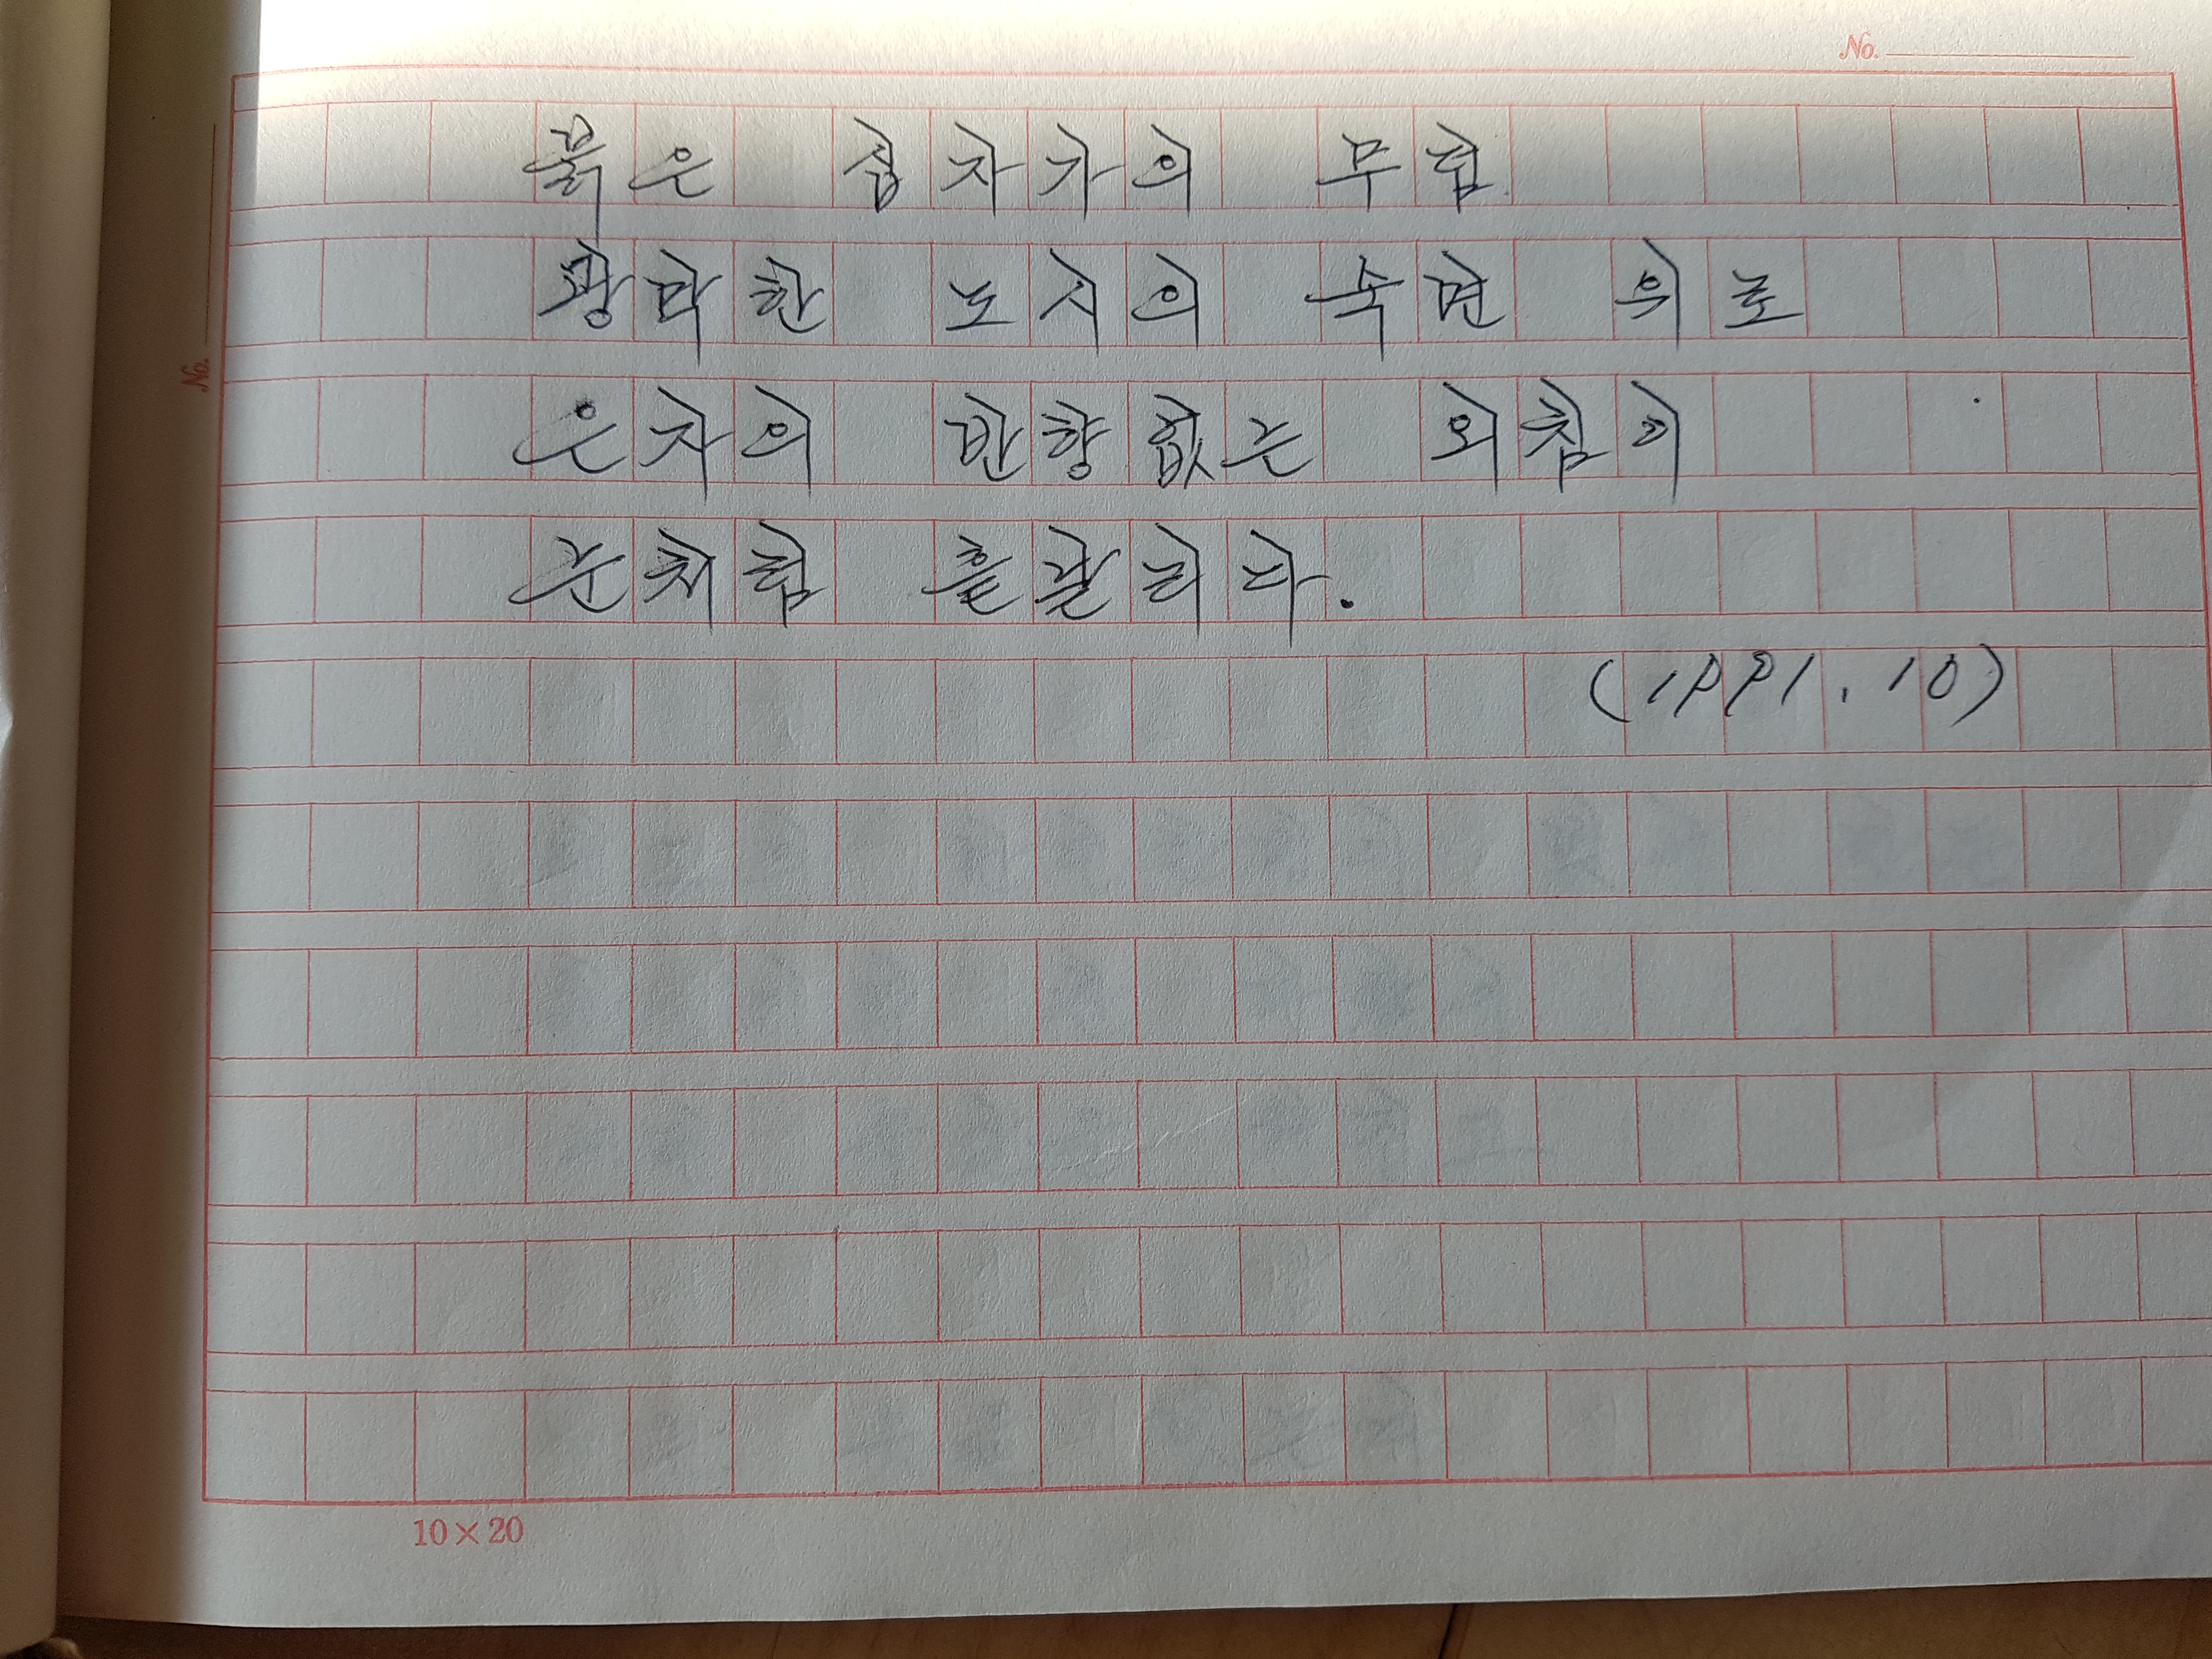 No.
붉은 십자가의 무덤
광막한 도시의 숙면 위로
No.
은자의 반향없는 외침이
눈처럼 흩날리다.
(1991.10)
10×20